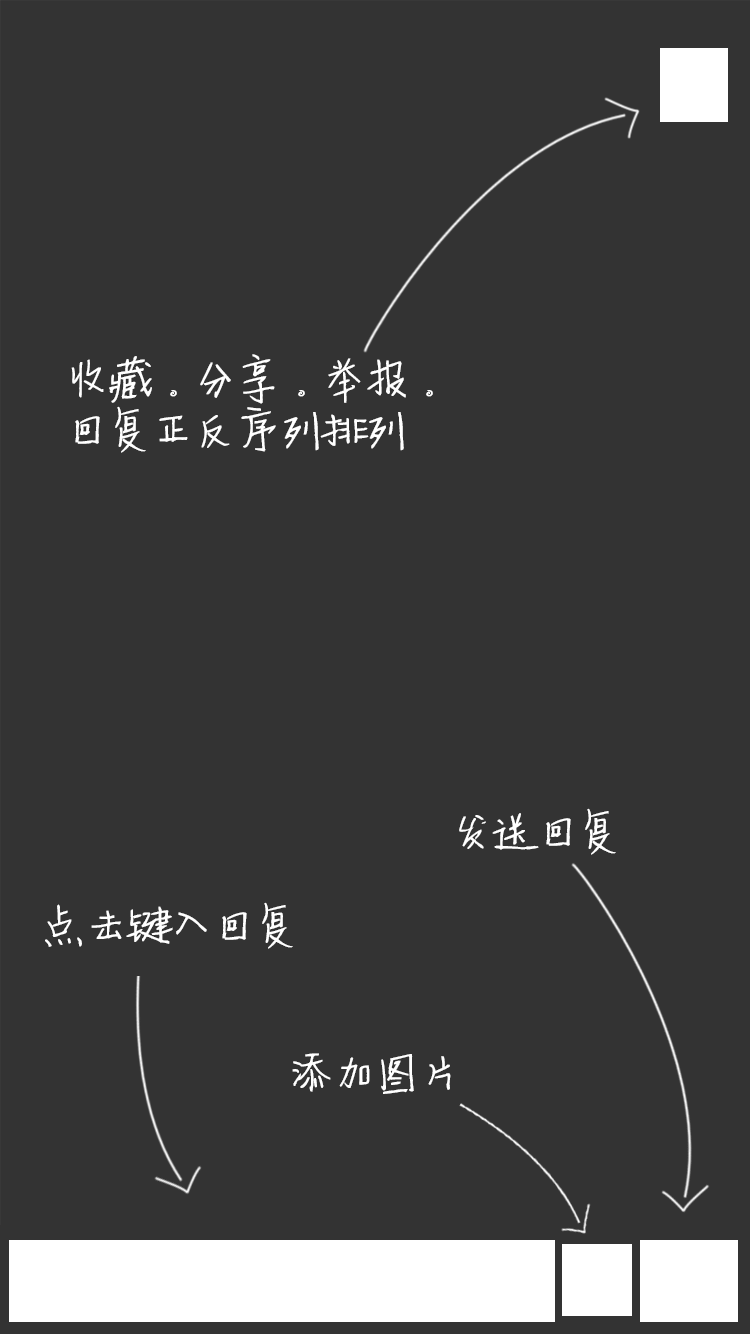 收藏。分享。举报。
回复正反序列排列
发送回复
点击键入回复
添加图片